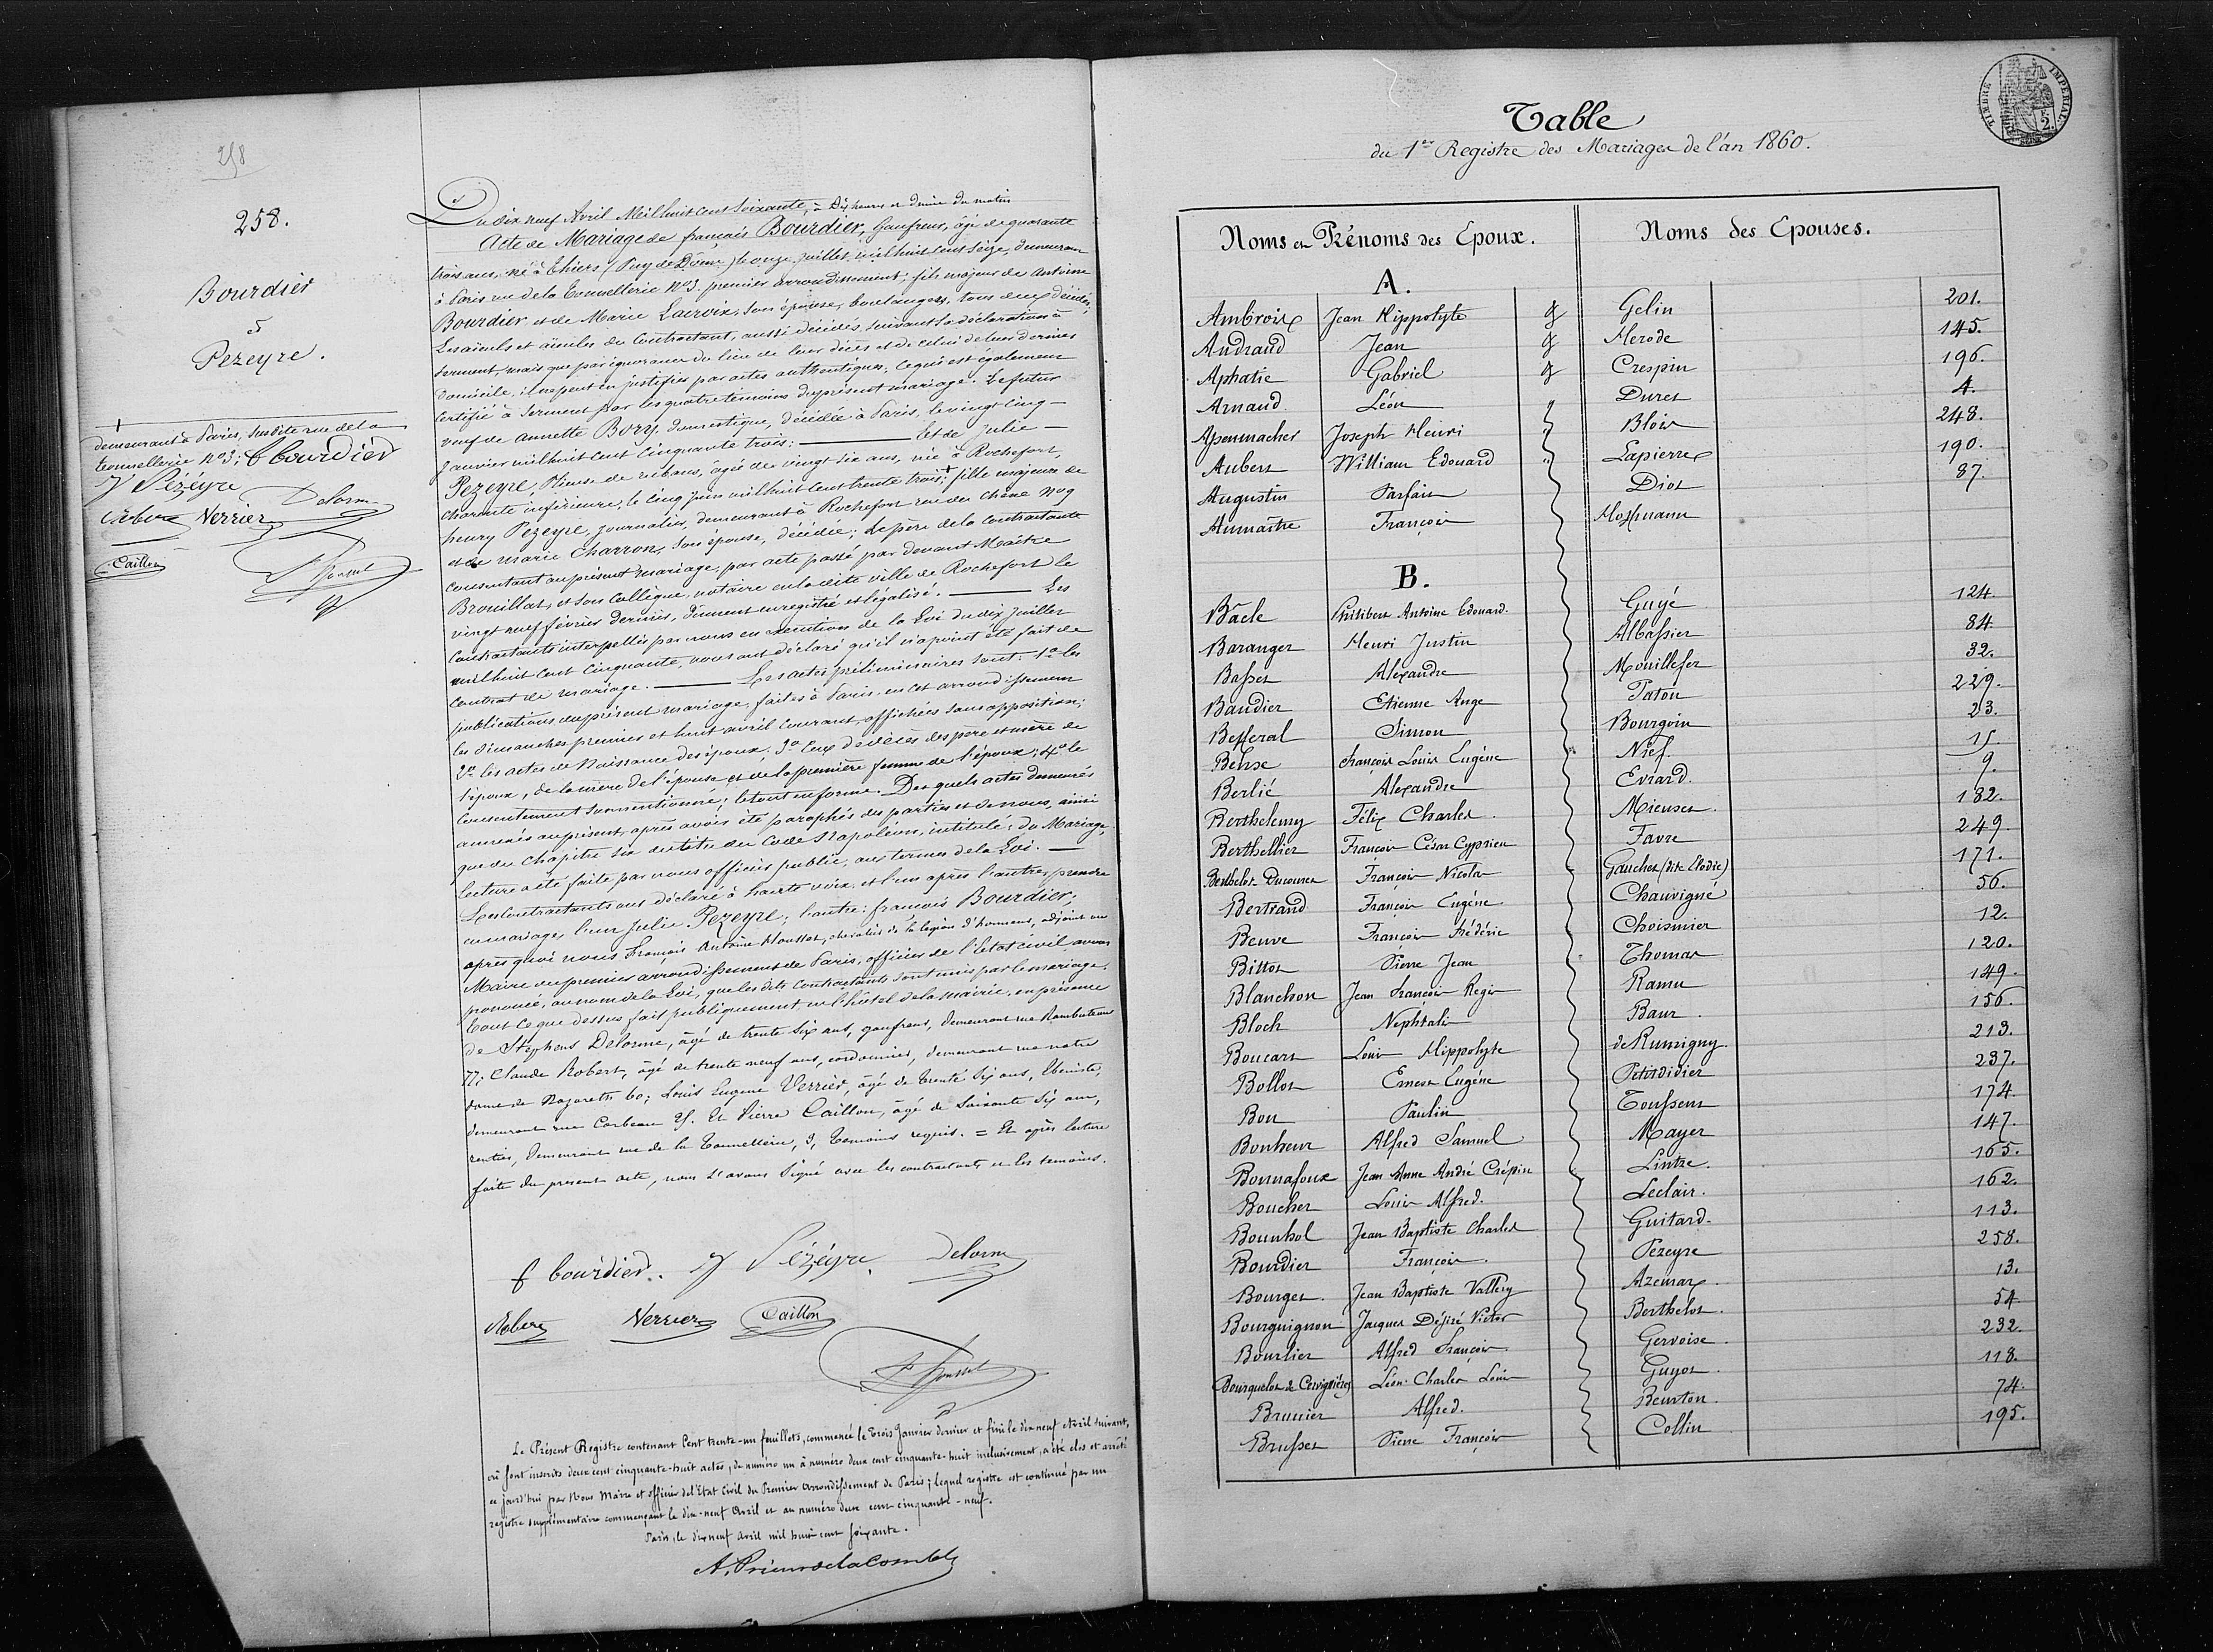 258
258.
Bourdier
et
Pezeyre.
demeurant à Paris, susdite rue de la
tonnellerie no 3; f bourdier
J Pézéyre
Delorme
Robert Verrier
Caillon
Du dix neuf Avril Mil huit cent soixante, à Dix heures et demie du matin
Acte de Mariage de françois Bourdier, Gaufreur, âgé de quarante
trois ans, né à Thiers (Puy de Dôme) le onze juillet mil huit cent seize, demeurant
à Paris rue de la Tonnellerie No 3. premier arrondissement; fils majeur de Antoine
Bourdier et de Marie Lacroix, son épouse, boulangers, tous deux décédés,
Les aïeuls et aïeules du Contractant, aussi décédés, suivant sa déclaration à
serment, mais que par ignorance du lieu de leur décès et de celui de leur dernier
domicile, il ne peut en justifier par actes authentiques, ce qui est également
Certifié à serment par les quatre témoins du présent mariage. Le futur
veuf de Annette Bory, domestique, décédée à Paris, le vingt cinq
Janvier mil huit cent cinquante trois: — Et de Julie —
Pezeyre, Plieuse de rubans, agée de vingt six ans, née à Rochefort,
charente inférieure, le cinq juin mil huit cent trente trois; + fille majeure de
henry Pezeyre, journalier, demeurant à Rochefort rue du Chêne no 9
et de marie Charron, son épouse, décédée; Le père de la contractante
consentant au présent mariage, par acte passé par devant Maître
Brouillat, et son Collègue, notaire en la dite ville de Rochefort le
vingt neuf février dernier, dûment enregistré et légalisé. — Les
Contractants interpellés par nous en exécution de la Loi du dix juillet
mil huit cent cinquante, nous ont déclaré qu'il n'a point été fait de
Contrat de mariage. — Les actes préliminaires sont: 1o les
publications du présent mariage, faites à Paris, en cet arrondissement
les dimanches premier et huit avril Courant, affichées sans opposition;
2o les actes de Naissance des époux; 3o Ceux de décès des père et mère de
l'époux, de la mère de l'épouse et de la première femme de l'époux; 4o le
Consentement susmentionné; le tout en forme. Des quels actes demeurés
annexés au présent, après avoir été paraphés des parties et de nous, ainsi
que du chapitre six du titre du Code Napoléon, intitulé: du Mariage,
lecture a été faite par nous officier public, aux termes de la Loi. —
Les Contractants ont déclaré à haute voix, et l'un après l'autre, prendre
en mariage, l'un Julie Pezeyre; l'autre: francois Bourdier;
après quoi nous François Antoine Housset, chevalier de la légion d'honneur, adjoint au
Maire du premier arrondissement de Paris, officier de l'Etat civil avons
prononcé, au nom de la Loi, que les dits Contractants sont unis par le mariage.
Tout Ce que dessus fait publiquement en l'hôtel de la mairie, en présence
de Stéphens Delorme, âgé de trente six ans, gaufreur, demeurant rue Rambuteau
77; Claude Robert, âgé de trente neuf ans, cordonnier, demeurant rue notre
dame de Nazareth 60; Louis Eugene Verrier, âgé de trente six ans, Ebéniste,
demeurant rue Corbeau 25. Et Pierre Caillon, âgé de Soixante six ans,
rentier, demeurant rue de la Tonnellerie, 3, temoins requis. = Et après lecture
faite du present acte, nous l'avons signé avec les contractants et les temoins.
f bourdier. J Pézéyre Delorme
Robert Verrier Caillon
Le Présent Registre contenant Cent trente-un feuillets, commencé le trois Janvier dernier et fini le dix neuf Avril suivant,
où sont inscrits deux cent cinquante-huit actes, du numéro un à numéro deux cent cinquante-huit inclusivement, a été clos et arrêté
ce jourd'hui par Nous Maire et officier de l'Etat Civil du Premier arrondissement de Paris; lequel registre est continué par un
registre supplémentaire commençant le dix-neuf Avril et au numéro deux cent cinquante-neuf.
Paris, le dix neuf avril mil huit cent soixante.
TIMBRE IMPÉRIAL
Table
du 1er Registre des Mariages de l'an 1860.
Noms et Prénoms des Epoux. Noms des Epouses.
A.
Ambroix Jean Hippolyte Gelin 201.
Andraud Jean Herode 145.
Aphatie Gabriel Crespin 196.
Arnaud Léon Duret 4.
Apenmacher Joseph Henri Bloir 248.
Aubert William Edouard Lapierre 190.
Augustin Parfait Diot 87.
Aumaître François Hoffmann
B.
Bacle Philibert Antoine Edouard. Guyé 124.
Baranger Henri Justin Albassier 84.
Basset Alexandre Mouillefer 32.
Baudier Etienne Ange Paton 229.
Simon Bourgoin 23.
Behse François Louis Eugène Nief 15.
Berlié Alexandre Evrard. 9.
Berthelemy Félix Charles. Mieuset. 182.
Berthellier François César Cyprien Favre 249.
Berthelot Ducouret François Nicolas Gaucher (dite Elodie) 171.
Bertrand François Eugène Chauvigné 56.
Beuve François Frédéric Choisnier 12.
Bittot Pierre Jean Thomas 120.
Blanchon Jean François Regis Ramu 149.
Bloch Nephtali Baur. 156.
Boucart Louis Hippolyte de Rumigny. 213.
Bollot Ernest Eugène Petitdidier 237.
Bon Paulin Toussent 174.
Bonheur Alfred Samuel Mayer 147.
Bonnafoux Jean Anne André Crépin Lintre. 165.
Boucher Louis Alfred. Leclair. 162.
Bounhol Jean Baptiste Charles Guitard. 113.
Bourdier François. Pezeyre 258.
Bourget. Jean Baptiste Vallery Azemar. 13.
Bourguignon Jacques Désiré Victor Berthelot. 54.
Bourlier Alfred François Gervoise. 232.
Bourquelot de Cervignières Léon Charles Louis Guyot. 118.
Brunier Alfred. Beurton. 74.
Brusset Pierre François Collin 195.